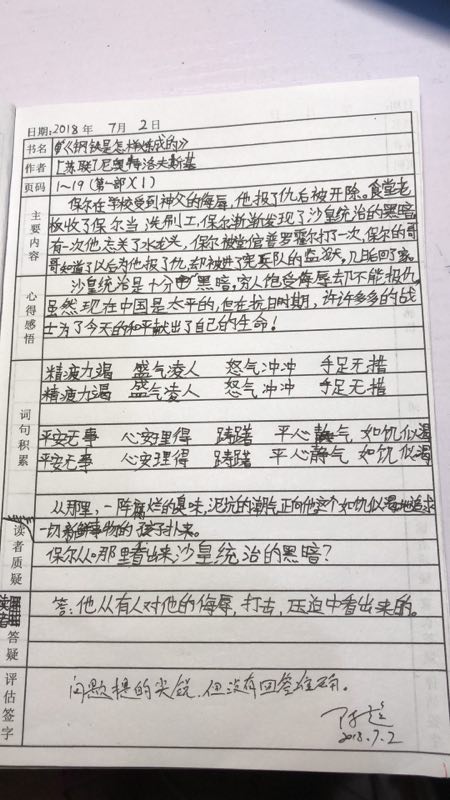 日期:2018年 7月 2日
书名 《钢铁是怎样炼成的》
作者 [苏联]尼奥特洛夫斯基
页码 1~19(第一部×1)
主要内容 保尔在学校受到神父的侮辱,他报了仇后被开除。食堂老
板收了保尔当洗刷工,保尔渐渐发现了沙皇统治的黑暗
有一次他忘关了水龙头,保尔被堂倌普罗霍尔打了一次,保尔的哥
哥知道了以后为他报了仇,却被进了宪兵队的监狱,几日后回了家。
心得感悟 沙皇统治是十分的黑暗,穷人饱受侮辱却不能报仇。
虽然现在中国是太平的,但在抗日时期,许许多多的战
士为了今天的和平献出了自己的生命!
词句积累 精疲力竭 盛气凌人 怒气冲冲 手足无措
精疲力竭 盛气凌人 怒气冲冲 手足无措
平安无事 心安理得 踌躇 平心静气 如饥似渴
平安无事 心安理得 踌躇 平心静气 如饥似渴
从那里,一阵腐烂的臭味,泥坑的潮气正向他这个如饥似渴地追求
一切新鲜事物的孩子扑来。
读者质疑 保尔从哪里看出来沙皇统治的黑暗?
答疑 答:他从有人对他的侮辱,打击,压迫中看出来的。
评估签字 问题提的尖锐,但没有回答准确。
2018.7.2